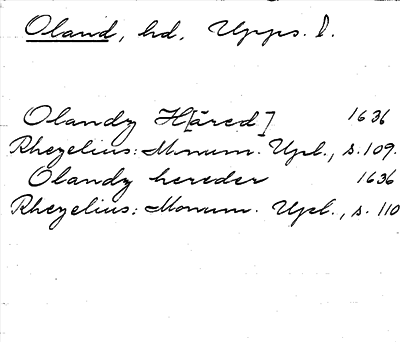 Oland, hd. Upps. l.
Olandz H[äred] 1636
Rhezelius: Monum. Upl., s. 109.
Olandz hereder 1636
Rhezelius: Monum. Upl., s. 110